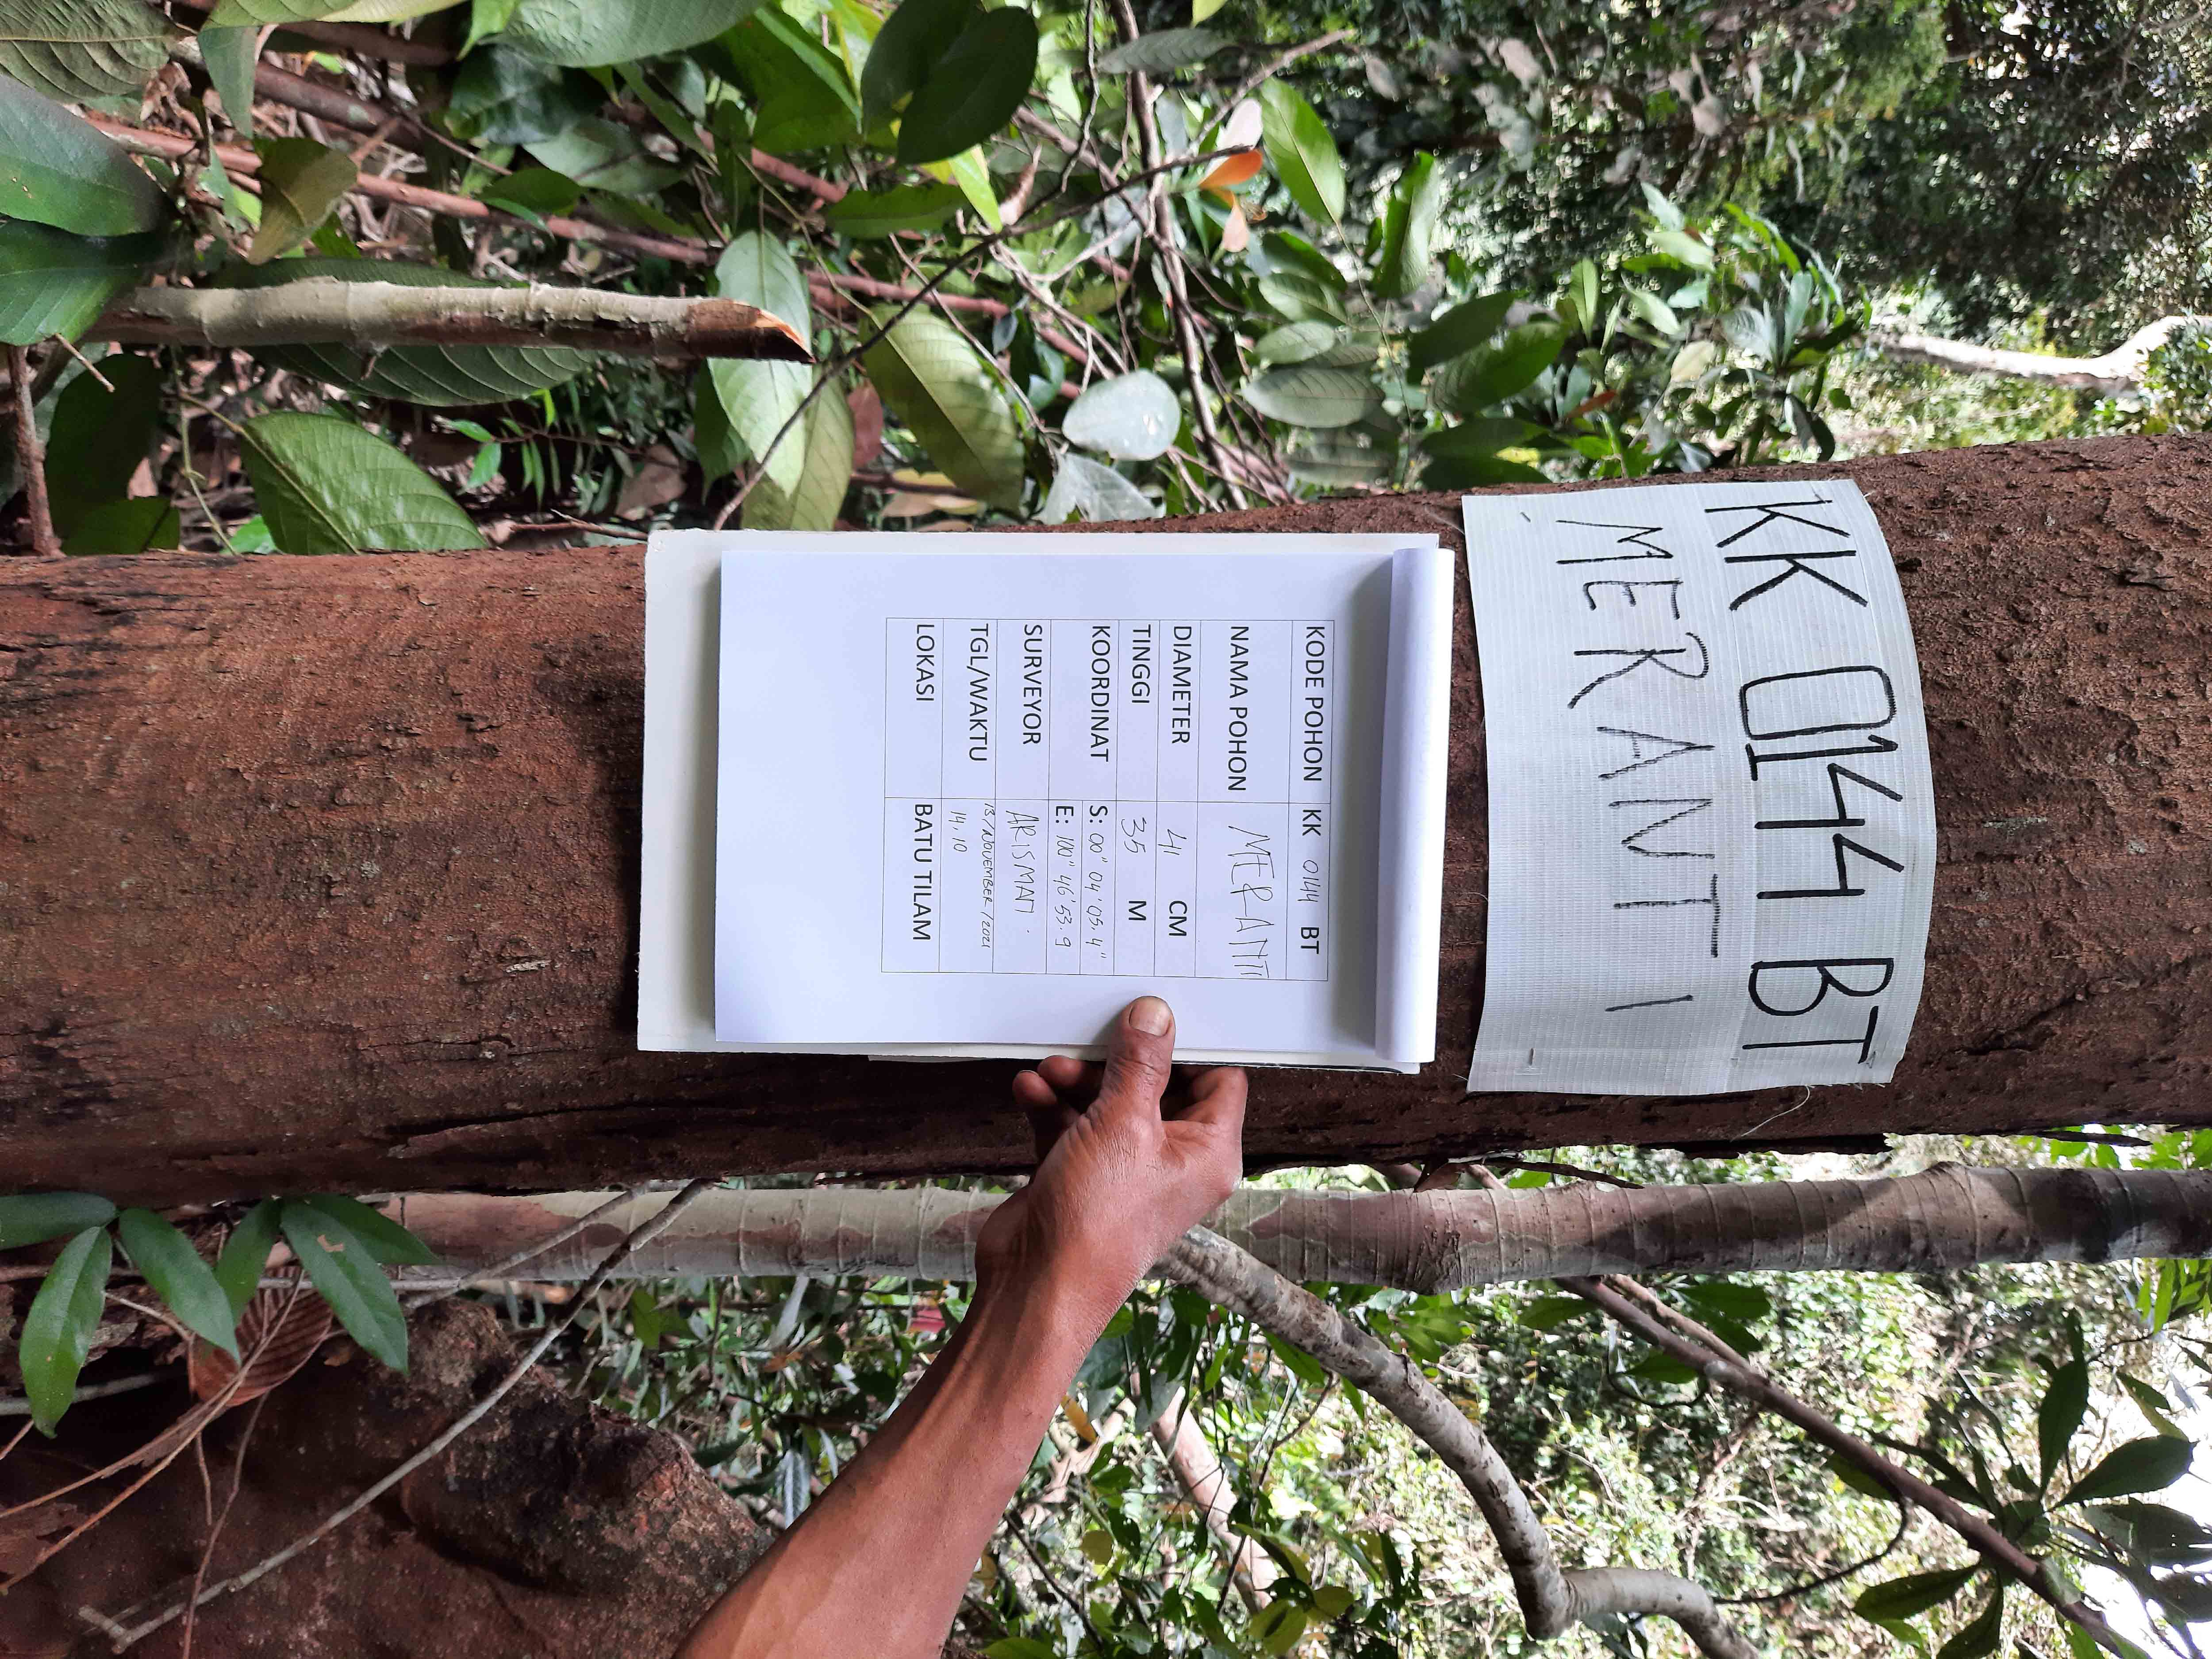 KK 0144 BT
MERANTI
KODE POHON KK 0144 BT
NAMA POHON MERANTI
DIAMETER 41 CM
TINGGI 35 M
KOORDINAT S: 00" 04' 05.4"
E: 100" 46' 53.9
SURVEYOR ARISMAN.
TGL/WAKTU 13/NOVEMBER/2021
14.10
LOKASI BATU TILAM